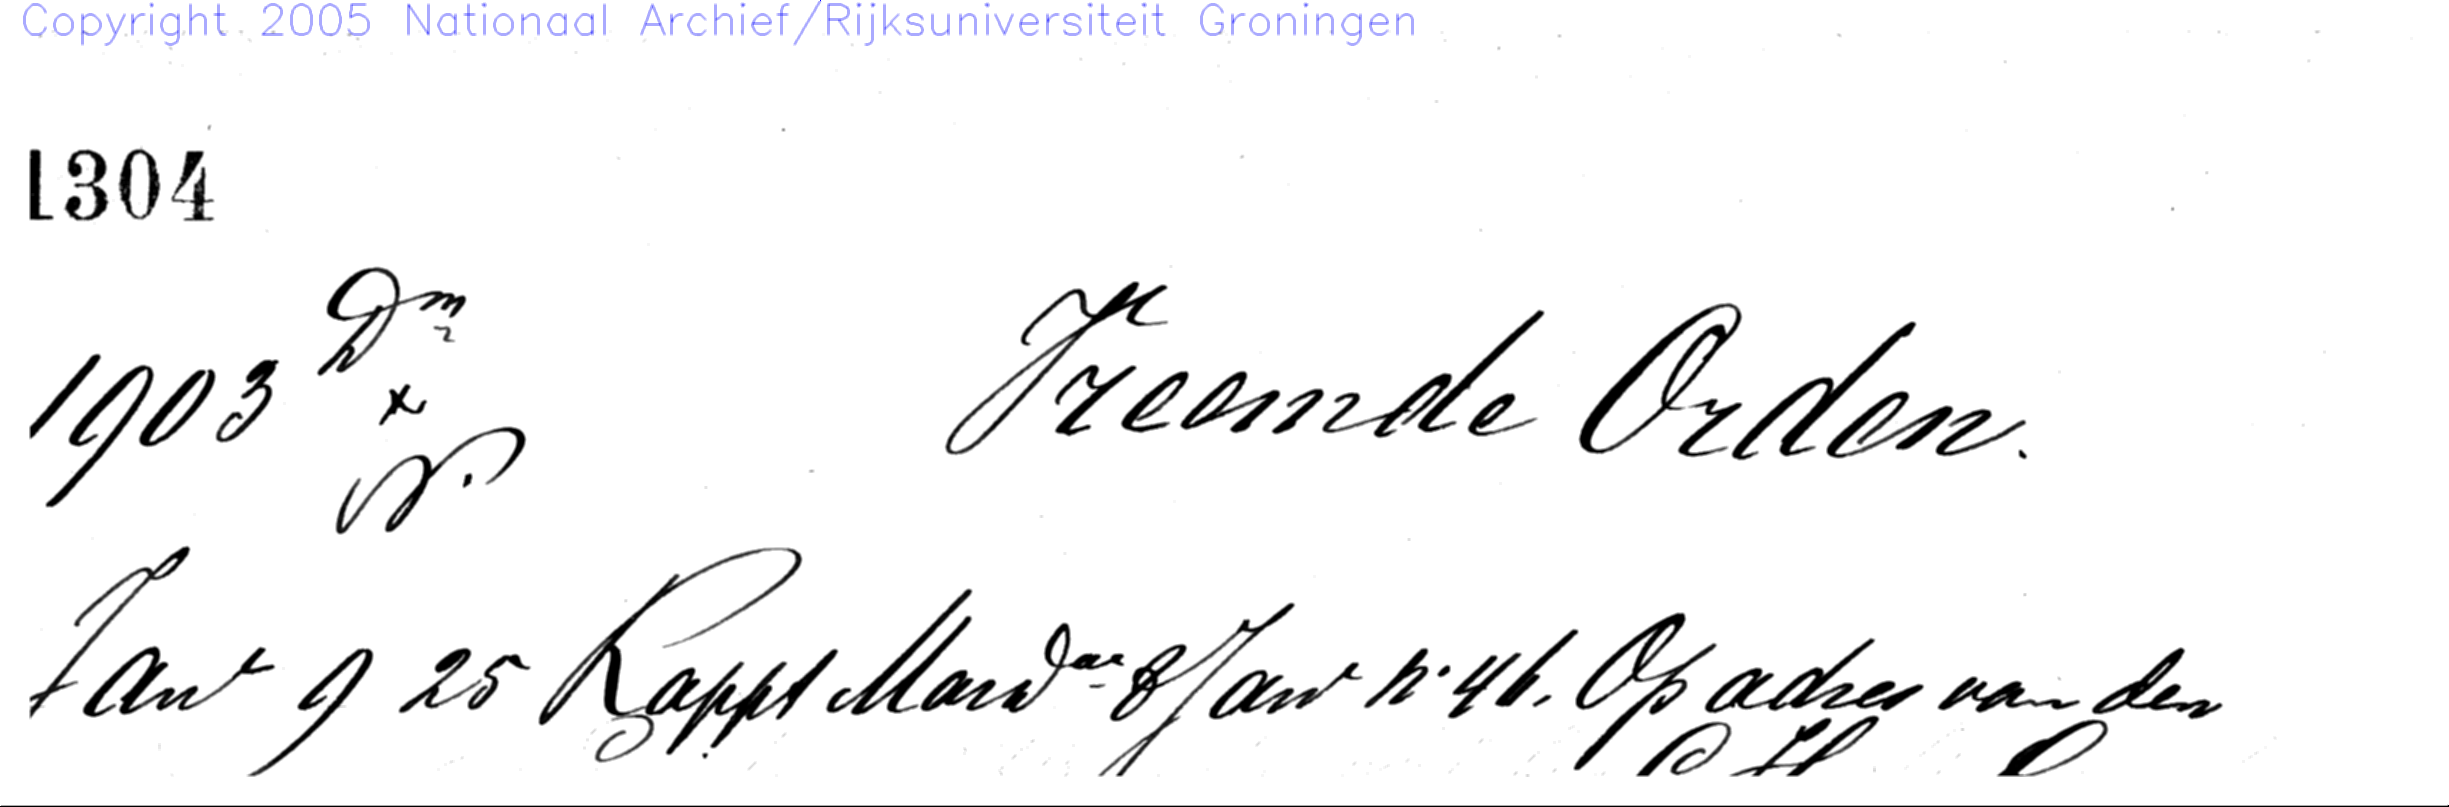 Copyright 2005 Nationaal Archief/Rijksuniversiteit Groningen
1304
Dm
1903
x
Vreemde Orden.
Janr 9 25 Rappt Mar 8 Janr no 46. Op adres van den